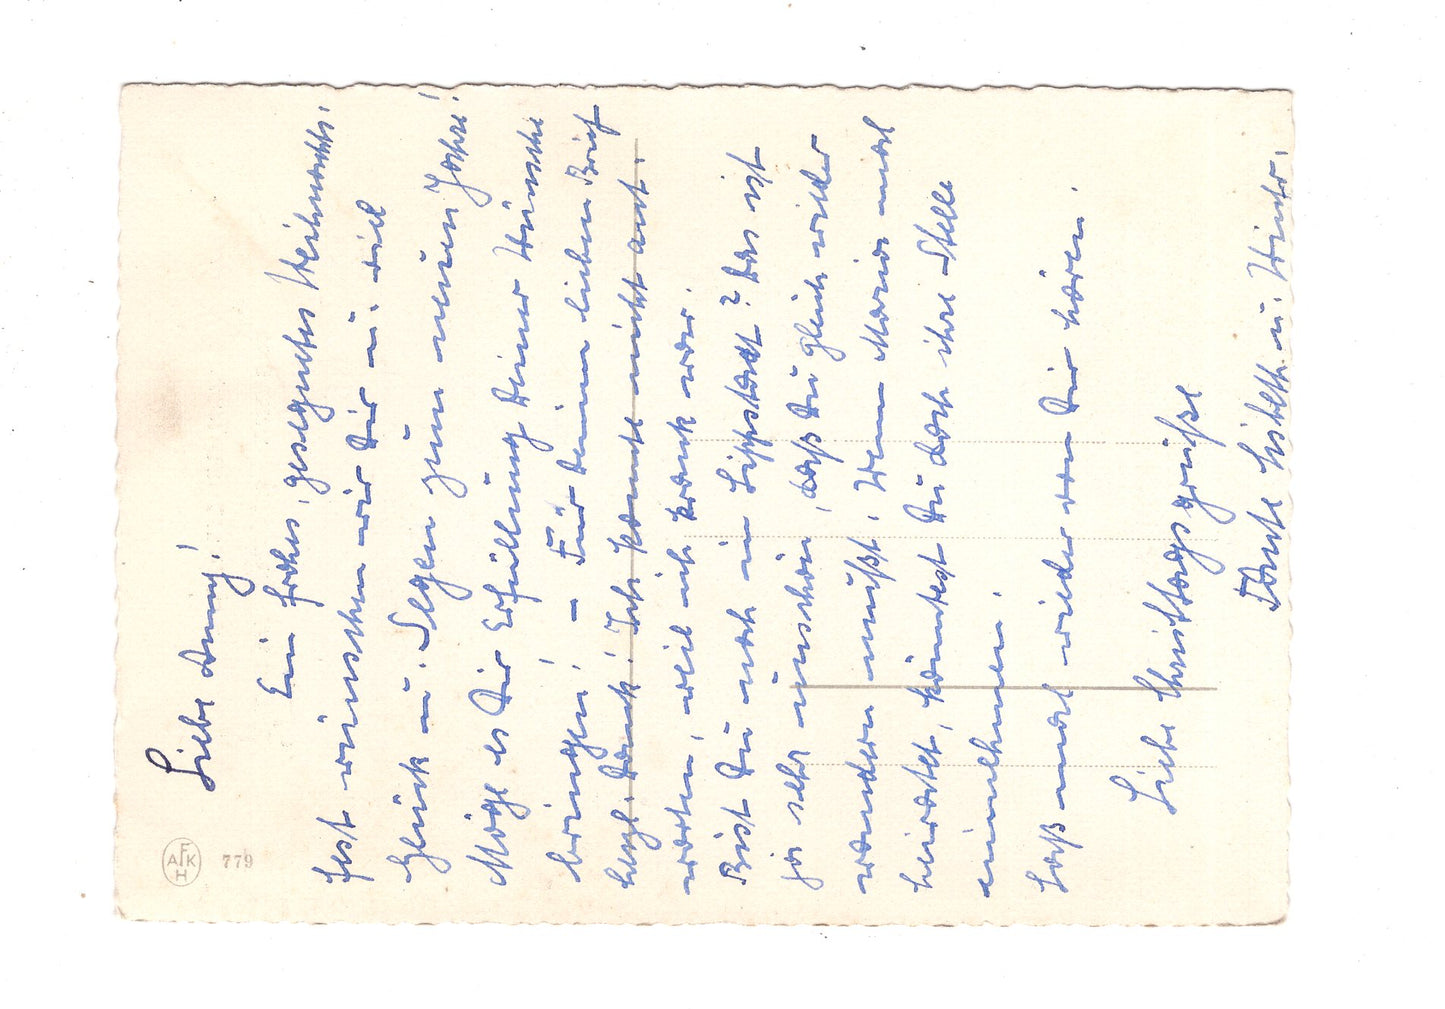 Liebe Anny!
Ein frohes, gesegnetes Weihnachts-
fest wünschen wir Dir u. viel
Glück u. Segen zum neuen Jahre!
Möge es Dir Erfüllung Deiner Wünsche
bringen! – Für Deinen lieben Brief
herzl. Dank! Ich konnte nicht ant-
worten, weil ich krank war.
Bist Du noch in Lippstadt? Das ist
ja sehr unschön, daß Du gleich wieder
wandern mußt. Wenn Maria mal
heiratet, könntest Du doch ihre Stelle
einnehmen!
Laß mal wieder von Dir hören.
Liebe Christtagsgrüße
Tante Lisbeth u.
AFKH 779